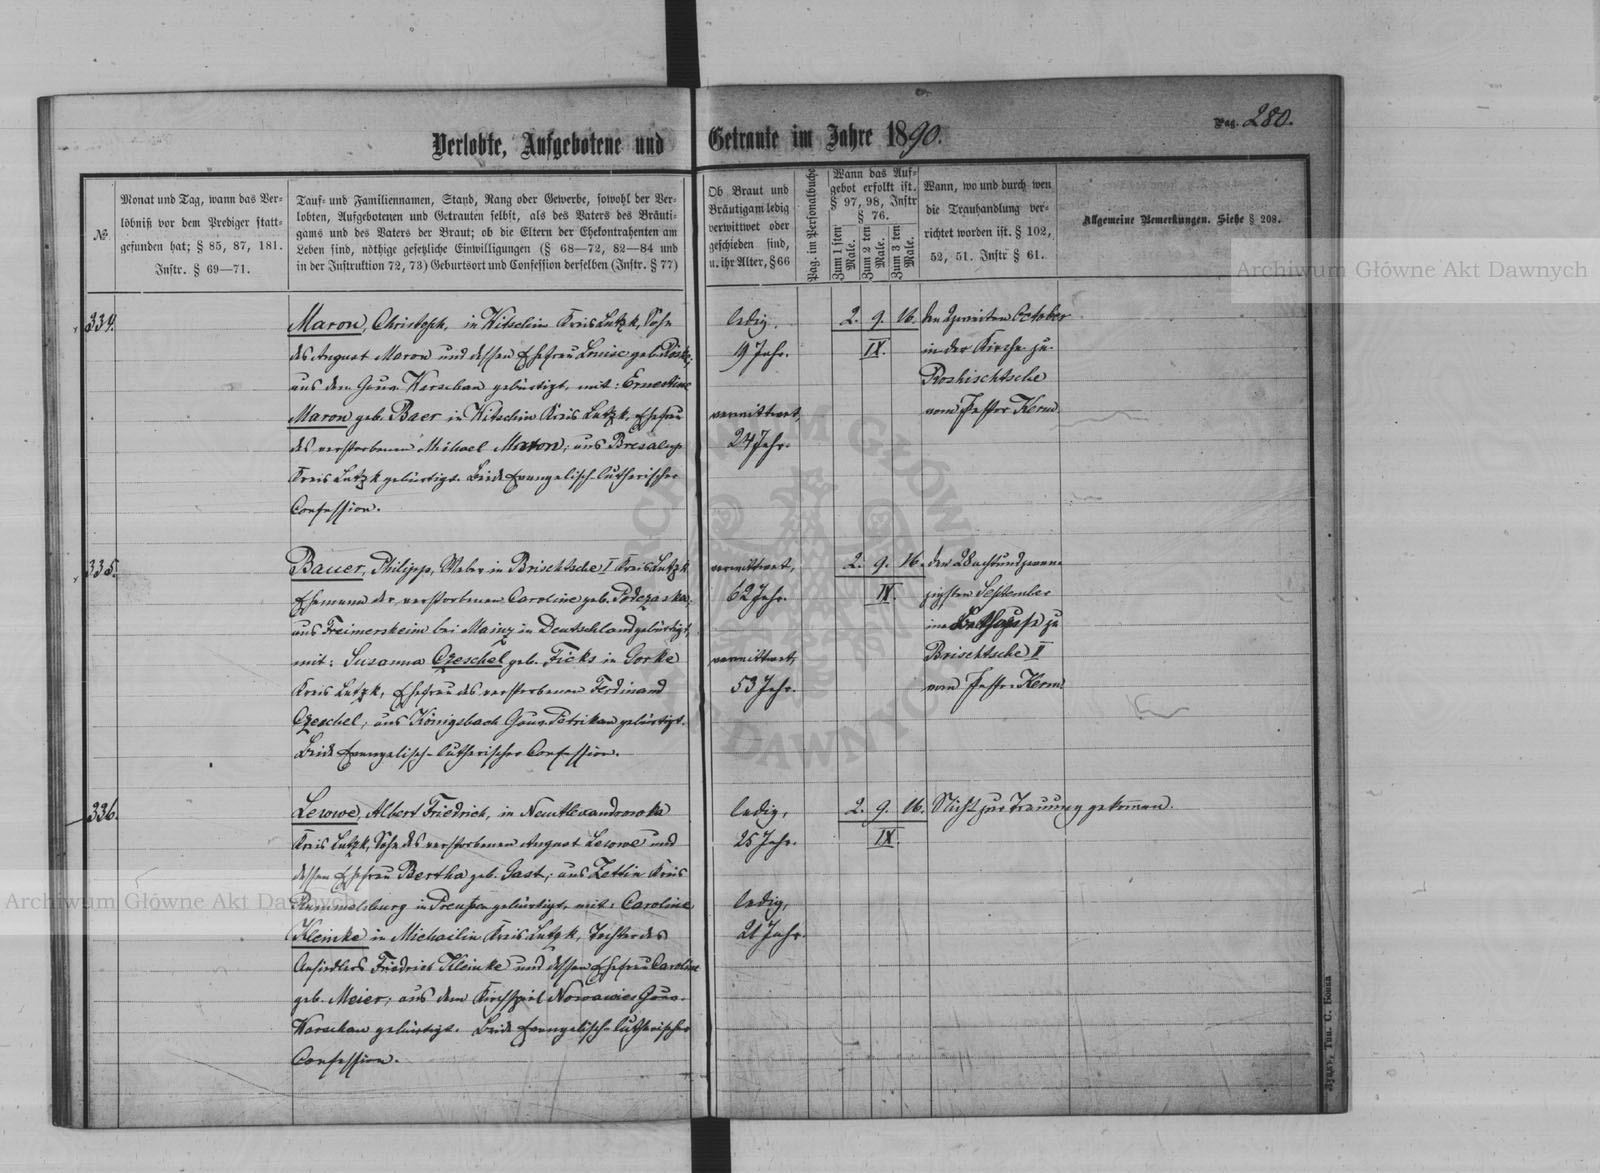 Pag. 280.
Verlobte, Aufgebotene und Getraute im Jahre 1890.
№
Monat und Tag, wann das Ver-
löbniß vor dem Prediger statt-
gefunden hat; § 85, 87, 181.
Instr. § 69—71.
Tauf- und Familiennamen, Stand, Rang oder Gewerbe, sowohl der Ver-
lobten, Aufgebotenen und Getrauten selbst, als des Vaters des Bräuti-
gams und des Vaters der Braut; ob die Eltern der Ehekontrahenten am
Leben sind, nöthige gesetzliche Einwilligungen (§ 68—72, 82—84 und
in der Instruktion 72, 73) Geburtsort und Confession derselben (Instr. § 77)
Ob Braut und
Bräutigam ledig
verwittwet oder
geschieden sind,
u. ihr Alter, § 66
Pag. im Personalbuche
Wann das Auf-
gebot erfolkt ist.
§ 97, 98, Instr
§ 76.
Zum 1 sten Male.
Zum 2 ten Male.
Zum 3 ten Male.
Wann, wo und durch wen
die Trauhandlung ver-
richtet worden ist. § 102,
52, 51. Instr § 61.
Allgemeine Bemerkungen. Siehe § 208.
334.
Maron, Christoph, in Kitschin Kreis Lutzk, Sohn
des August Maron und dessen Ehefrau Louise geb.
aus dem Gouv. Warschau gebürtigt, mit: Ernestine
Maron geb. Baer in Kitschin Kreis Lutzk, Ehefrau
des verstorbenen Michael Maron, aus
Kreis Lutzk gebürtigt. Beide Evangelisch-lutherischer
Confession.
ledig,
19 Jahr.
verwittwet,
24 Jahr.
2. 9. 16.
IX.
den zweiten October
in der Kirche zu
Roshischtsche
vom Pastor Kern
335.
Bauer, Philipp, Weber in Brischtsche I Kreis Lutzk
Ehemann der verstorbenen Caroline geb. Podezaska,
aus Freimersheim bei Mainz in Deutschland gebürtigt,
mit: Susanna Czeschel geb. Ficks in Gorke
Kreis Lutzk, Ehefrau des verstorbenen Ferdinand
Czeschel, aus Königsbach Gouv. Petrikau gebürtigt.
Beide Evangelisch-lutherischer Confession.
verwittwet,
62 Jahr.
verwittwet,
53 Jahr.
2. 9. 16.
IX.
den 28 achtundzwan-
zigsten September
im Bethause zu
Brischtsche II
vom Pastor Kern
336.
Lesowe, Albert Friedrich, in Neu Alexandrowka
Kreis Lutzk, Sohn des verstorbenen August Lesowe und
dessen Ehefrau Bertha geb. Gast, aus Zettin Kreis
Rummelsburg in Preußen gebürtigt, mit: Caroline
Kleinke in Michailin Kreis Lutzk, Tochter des
Ansiedlers Friedrich Kleinke und dessen Ehefrau Caroline
geb. Meier, aus dem Kirchspiel Nowawies Gouv.
Warschau gebürtigt. Beide Evangelisch-lutherischer
Confession.
ledig,
25 Jahr.
ledig,
21 Jahr.
2. 9. 16.
IX.
Nicht zur Trauung gekommen.
Луцкъ, Тип. С. Бокка
Archiwum Główne Akt Dawnych
Archiwum Główne Akt Dawnych